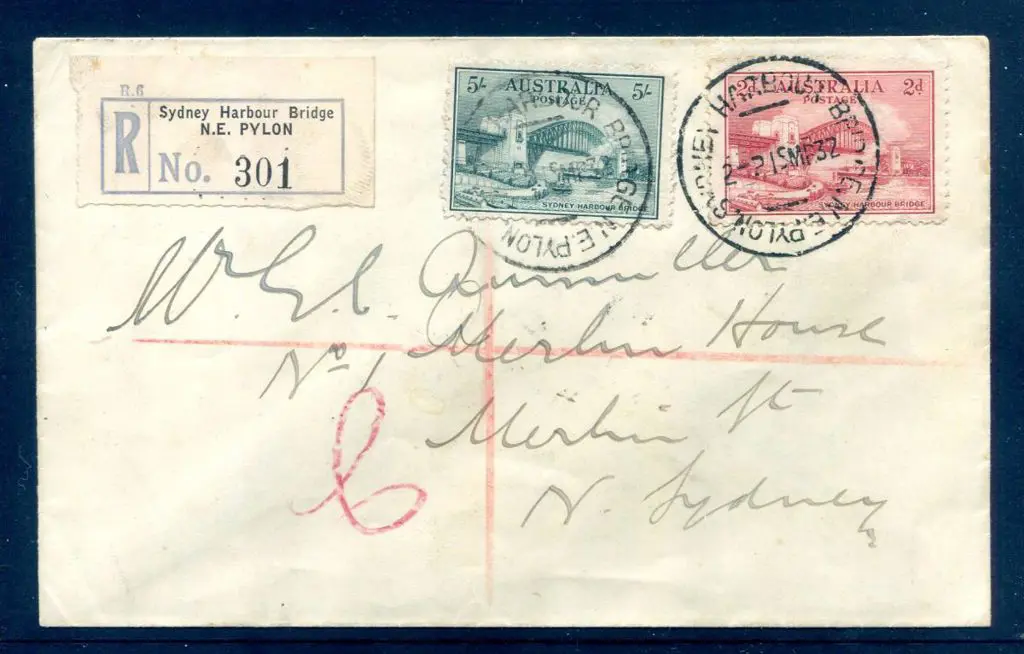 R.6
Sydney Harbour Bridge
N.E. PYLON
R No. 301
5/- AUSTRALIA 5/-
POSTAGE
SYDNEY HARBOUR BRIDGE
HARBOUR BRIDGE N.E. PYLON
2d AUSTRALIA 2d
POSTAGE
SYDNEY HARBOUR BRIDGE
SYDNEY HARBOUR BRIDGE N.E. PYLON
21 MR 32
Merlin House
No 1 Merlin St
N. Sydney